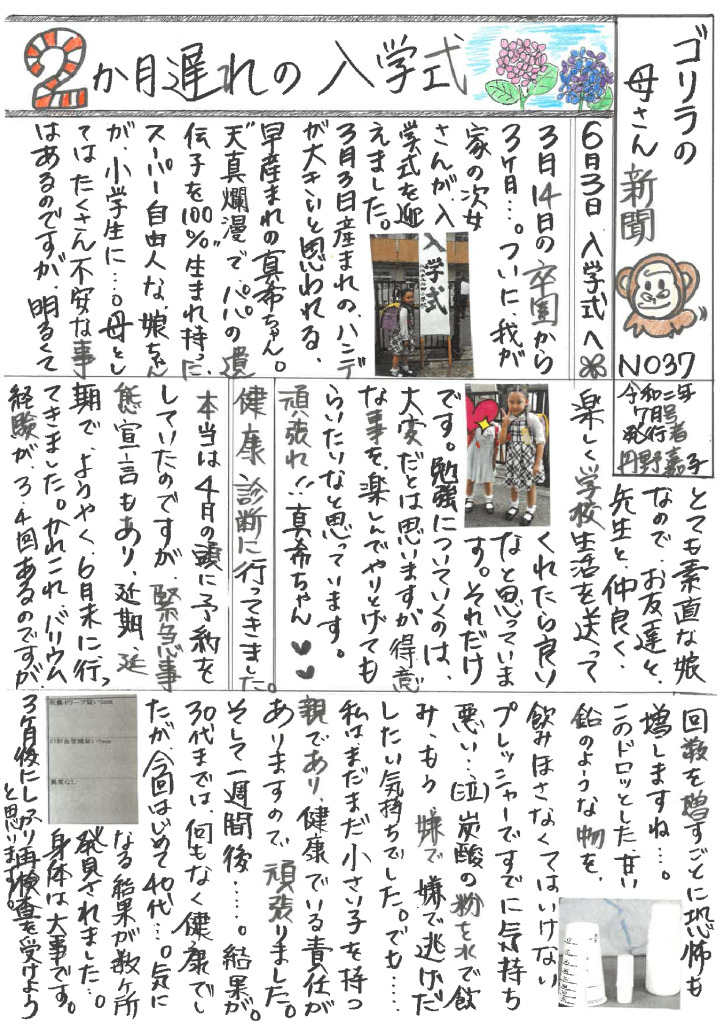 ゴリラの
母さん新聞
NO37
令和二年
7月号
発行者
丹野嘉子
2か月遅れの入学式
6月3日入学式へ
3月14日の卒園から
3ヶ月…。ついに、我が
家の次女
さんが、入
学式を迎
えました。
3月3日産まれの、ハンデ
が大きいと思われる、
早産まれの真希ちゃん。
天真爛漫で、パパの遺
伝子を100%生まれ持った
スーパー自由人な、娘ちゃん
が、小学生に…。母とし
てはたくさん不安な事
はあるのですが、明るくて
入学式
とても素直な娘
なので、お友達と、
先生と、仲良く、
楽しく学校生活を送って
くれたら良い
なと思っていま
す。それだけ
です。勉強についていくのは、
大変だとは思いますが、得意
な事を、楽しんでやりとげても
らいたいなと思っています。
頑張れ!!真希ちゃん
健康診断に行ってきました。
本当は4月の頭に予約を
していたのですが、緊急事
態宣言もあり、延期、延
期で、ようやく、6月末に行っ
てきました。かれこれバリウム
経験が、3、4回あるのですが
回数を増すごとに恐怖も
増しますね…。
このドロッとした、甘い
鉛のような物を、
飲みほさなくてはいけない
プレッシャーですでに気持ち
悪い…(泣)炭酸の粉を水で飲
み、もう嫌で嫌で逃げだ
したい気持ちでした。でも……
私はまだまだ小さい子を持つ
親であり、健康でいる責任が
ありますので、頑張りました。
そして一週間後……。結果が。
30代までは、何もなく健康でし
たが、今回はじめて40代…。気に
なる結果が数ヶ所
発見されました…。
身体は大事です。
3ヶ月後にしっかり再検査を受けよう
と思います。
胆嚢ポリープ疑い3mm
肝肝血管腫疑い7mm
異常なし